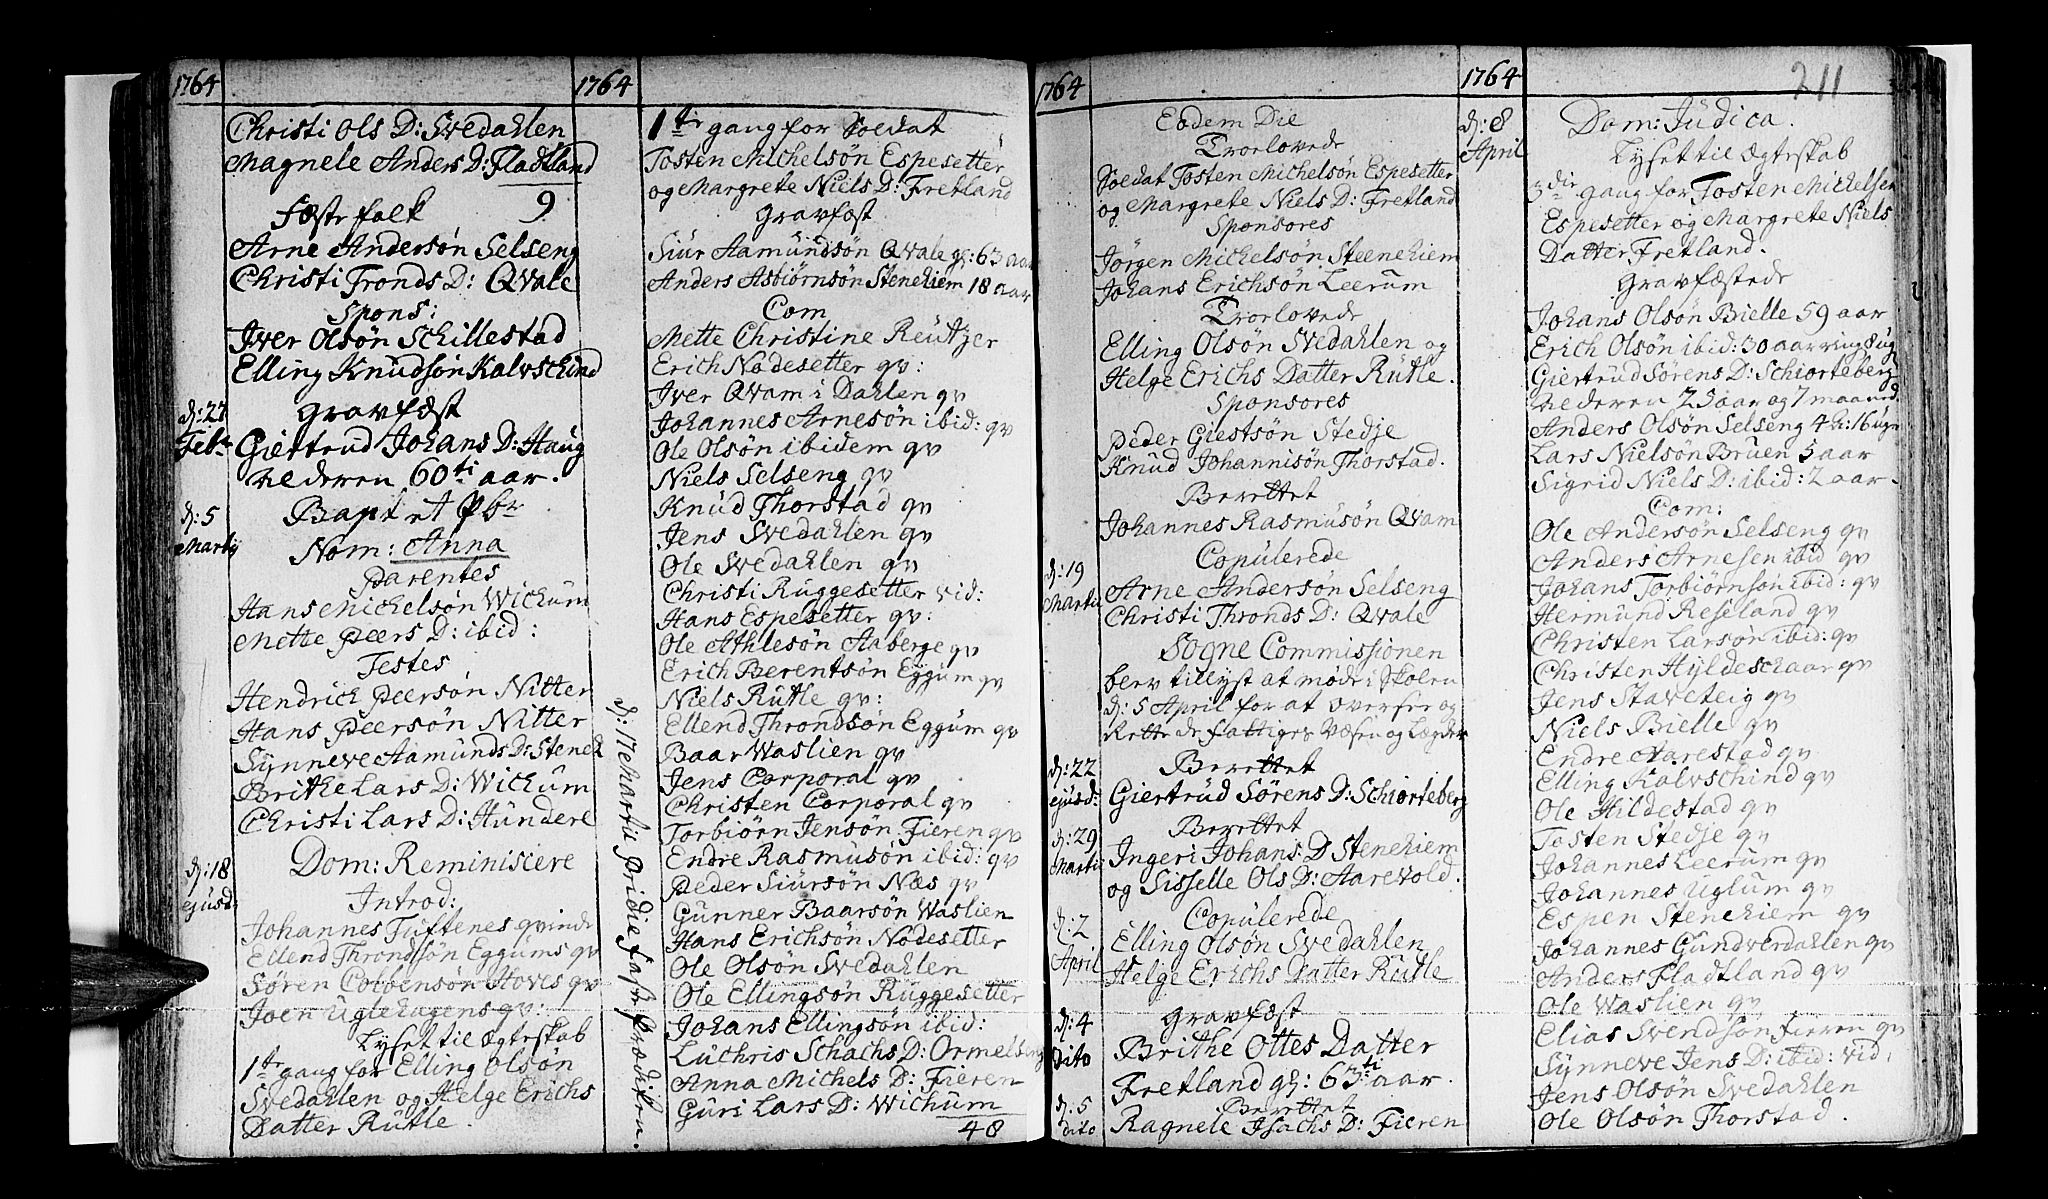 1764
Christi Ols D: Svedahlen
Magnele Anders D: Fladtland
9
Fæstefolk
Arne Andersøn Selseng
Christi Tronds D: Qvale
Spons:
Iver Olsøn Schillestad
Elling Knudsøn Kalvschind
d: 27 Febr
Gravfæst
Giertrud Johans D: Haug
Nederen 60ti aar.
d: 5 Martij
Bapt et Pbr
Nom: Anna
Parentes
Hans Michelsøn Wichum
Mette Peers D: ibid:
Testes
Hendrich Peersøn Nitter
Hans Peersøn Nitter
Synneve Aamunds D: Steneh
Brithe Lars D: Wichum
Christi Lars D: Hundere
d: 18 ejusd:
Dom: Reminiscere
Introd:
Johannes Tuftenes qvinde
Ellend Throndsøn Eggums qv
Søren Colbensøn Hoves qv
Joen Uglehagens qv:
Lyset til Ægteskab
1te gang for Elling Olsøn
Svedahlen og Helge Erichs
Datter Rutle.
1764
1te gang for Soldat
Tosten Michelsøn Espesetter
og Margrete Niels D: Fretland
Gravfæst
Siur Aamundsøn Qvale gl: 63 aar
Anders Asbiørnsøn Stenehiem 18 aar
d: 17 Martii pridie faste prædiken.
Com
Mette Christine Reutzer
Erich Nodesetter qv:
Iver Qvam i Dahlen qv
Johannes Arnesøn ibid: qv
Ole Olsøn ibidem qv
Niels Selseng qv
Knud Thorstad qv
Jens Svedahlen qv
Ole Svedahlen qv
Christi Ruggesetter vid:
Hans Espesetter qv:
Ole Athlesøn Aaberge qv
Erich Berentsøn Eggum qv
Niels Rutle qv:
Ellend Throndsøn Eggum qv
Baar Waslien qv
Jens Corporal qv
Christen Corporal qv
Torbiørn Jensøn Fieren qv
Endre Rasmusøn ibid: qv
Peder Siursøn Næs qv
Gunner Baarsøn Waslien
Hans Erichsøn Nodesetter
Ole Olsøn Svedahlen
Ole Ellingsøn Ruggesetter
Johans Ellingsøn ibid:
Luthris Schachs D: Ormelseng
Anna Michels D: Fieren
Guri Lars D: Wichum
48
1764
Eodem Die
Trorlovede
Soldat Tosten Michelsøn Espesetter
og Margrete Niels D: Fretland
Sponsores
Jørgen Michelsøn Steenehiem
Johans Erichsøn Leerum
Trorlovede
Elling Olsøn Svedahlen og
Helge Erichs Datter Rutle.
Sponsores
Peder Giestsøn Stedje
Knud Johannisøn Thorstad.
Berettet
Johannes Rasmusøn Qvam
d: 19 Martii
Copulerede
Arne Andersøn Selseng
Christi Thronds D: Qvale
Sogne Commissionen
blev tillyst at møde i Skolen
d: 5 April for at oversee og
Rette de fattiges væsen og Lægder
d: 22 ejusd:
Berettet
Giertrud Sørens D: Schiorteberg
d: 29 Martii
Berettet
Ingeri Johans D Stenehiem
og Sisselle Ols D: Aarevold.
d: 2 April
Copulerede
Elling Olsøn Svedahlen
Helge Erichs Datter Rutle
d: 4 dito
Gravfæst
Brithe Ottes Datter
Fretland gl: 63ti aar.
d: 5 dito
Berettet
Ragnele Isachs D: Fieren
1764
211
d: 8 April
Dom: Judica.
Lyset til Ægteskab
3die gang for Tosten Michelsen
Espesetter og Margrete Niels
Datter Fretland.
Gravfæstede
Johans Olsøn Bielle 59 aar
Erich Olsøn ibid: 30 aar ring 8 ug
Giertrud Sørens D: Schiorteberg
Nederen 25 aar og 7 maaned
Anders Olsøn Selseng 4 h: 16 ugr
Lars Nielsøn Bruen 5 aar
Sigrid Niels D: ibid: 2 aar.
Com:
Ole Andersøn Selseng qv
Anders Arnesen ibid qv
Johans Torbiørnsøn ibid: qv
Hermund Reseland qv
Christen Larsøn ibid: qv
Christen Hyldeschaar qv
Jens Staveteig qv
Niels Bielle qv
Endre Aarestad qv
Elling Kalvschind qv
Ole Hildestad qv
Tosten Stedje qv
Johannes Leerum qv
Johannes Uglum qv
Espen Stenehiem qv
Johannes Gundverdahlen qv
Anders Fladtland qv
Ole Waslien qv
Elias Svendsøn Fieren qv
Synneve Jens D: ibid: vid:
Jens Olsøn Svedahlen
Ole Olsøn Thorstad.